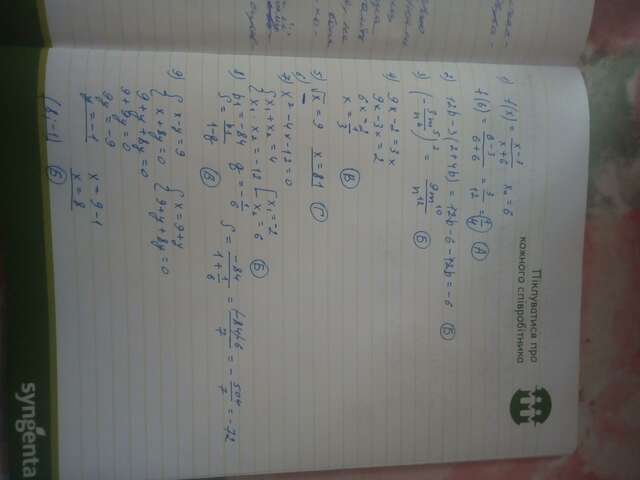 Піклуватися про
кожного співробітника
1) f(x) = x-3/x+6 x₀ = 6
f(6) = 6-3/6+6 = 3/12 = 1/4 А
2) 12b - 3(2+4b) = 12b - 6 - 12b = -6 Б
3) (-3m⁵/n⁶)² = 9m¹⁰/n¹² Б
4) 9x - 2 = 3x
9x - 3x = 2
6x = 2
x = 1/3 В
5) √x = 9 x = 81 Г
6) -
7) x² - 4x - 12 = 0
{ x₁ + x₂ = 4 { x₁ = -2
x₁ · x₂ = -12 x₂ = 6 Б
8) b₁ = -84 q = -1/6 S = -84/1+1/6 = (-84)·6/7 = -504/7 = -72
S = b₁/1-q В
9) { x - y = 9 { x = 9 + y
x + 8y = 0 9 + y + 8y = 0
9 + y + 8y = 0
9 + 9y = 0
9y = -9
y = -1 x = 9 - 1
x = 8
(8; -1) Б
syngenta